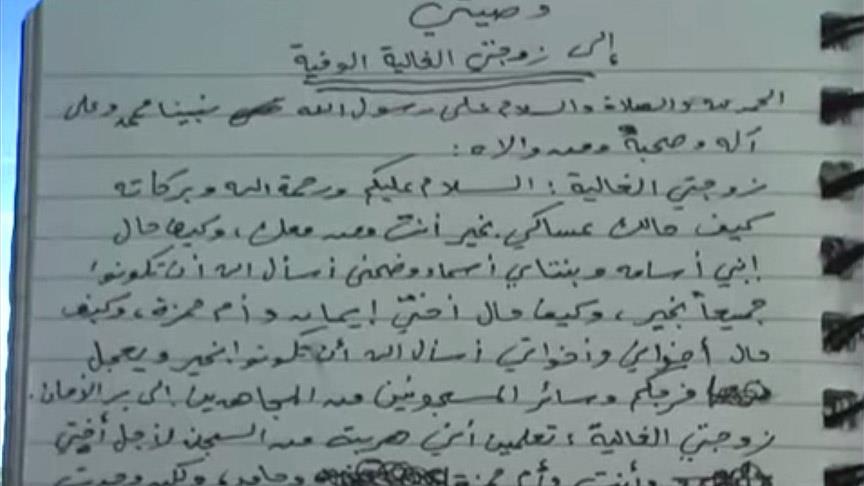 وصيتي
إلى زوجتي الغالية الوفية
الحمد لله والصلاة والسلام على رسول الله نبينا محمد وعلى
آله وصحبه ومن والاه :
زوجتي الغالية : السلام عليكم ورحمة الله وبركاته
كيف حالك عساكي بخير أنت ومن معك ، وكيف حال
إبني أسامه وبنتاي أسماء وضحى أسأل الله أن تكونوا
جميعاً بخير ، وكيف حال أختي إيمان وأم حمزة ، وكيف
حال أخواني وأخواتي أسأل الله أن تكونوا بخير ويعجل
فرجكم وسائر المسجونين من المجاهدين إلى بر الأمان .
زوجتي الغالية ، تعلمين أنني هربت من السجن لأجل أختي
وأنت وأم حمزة